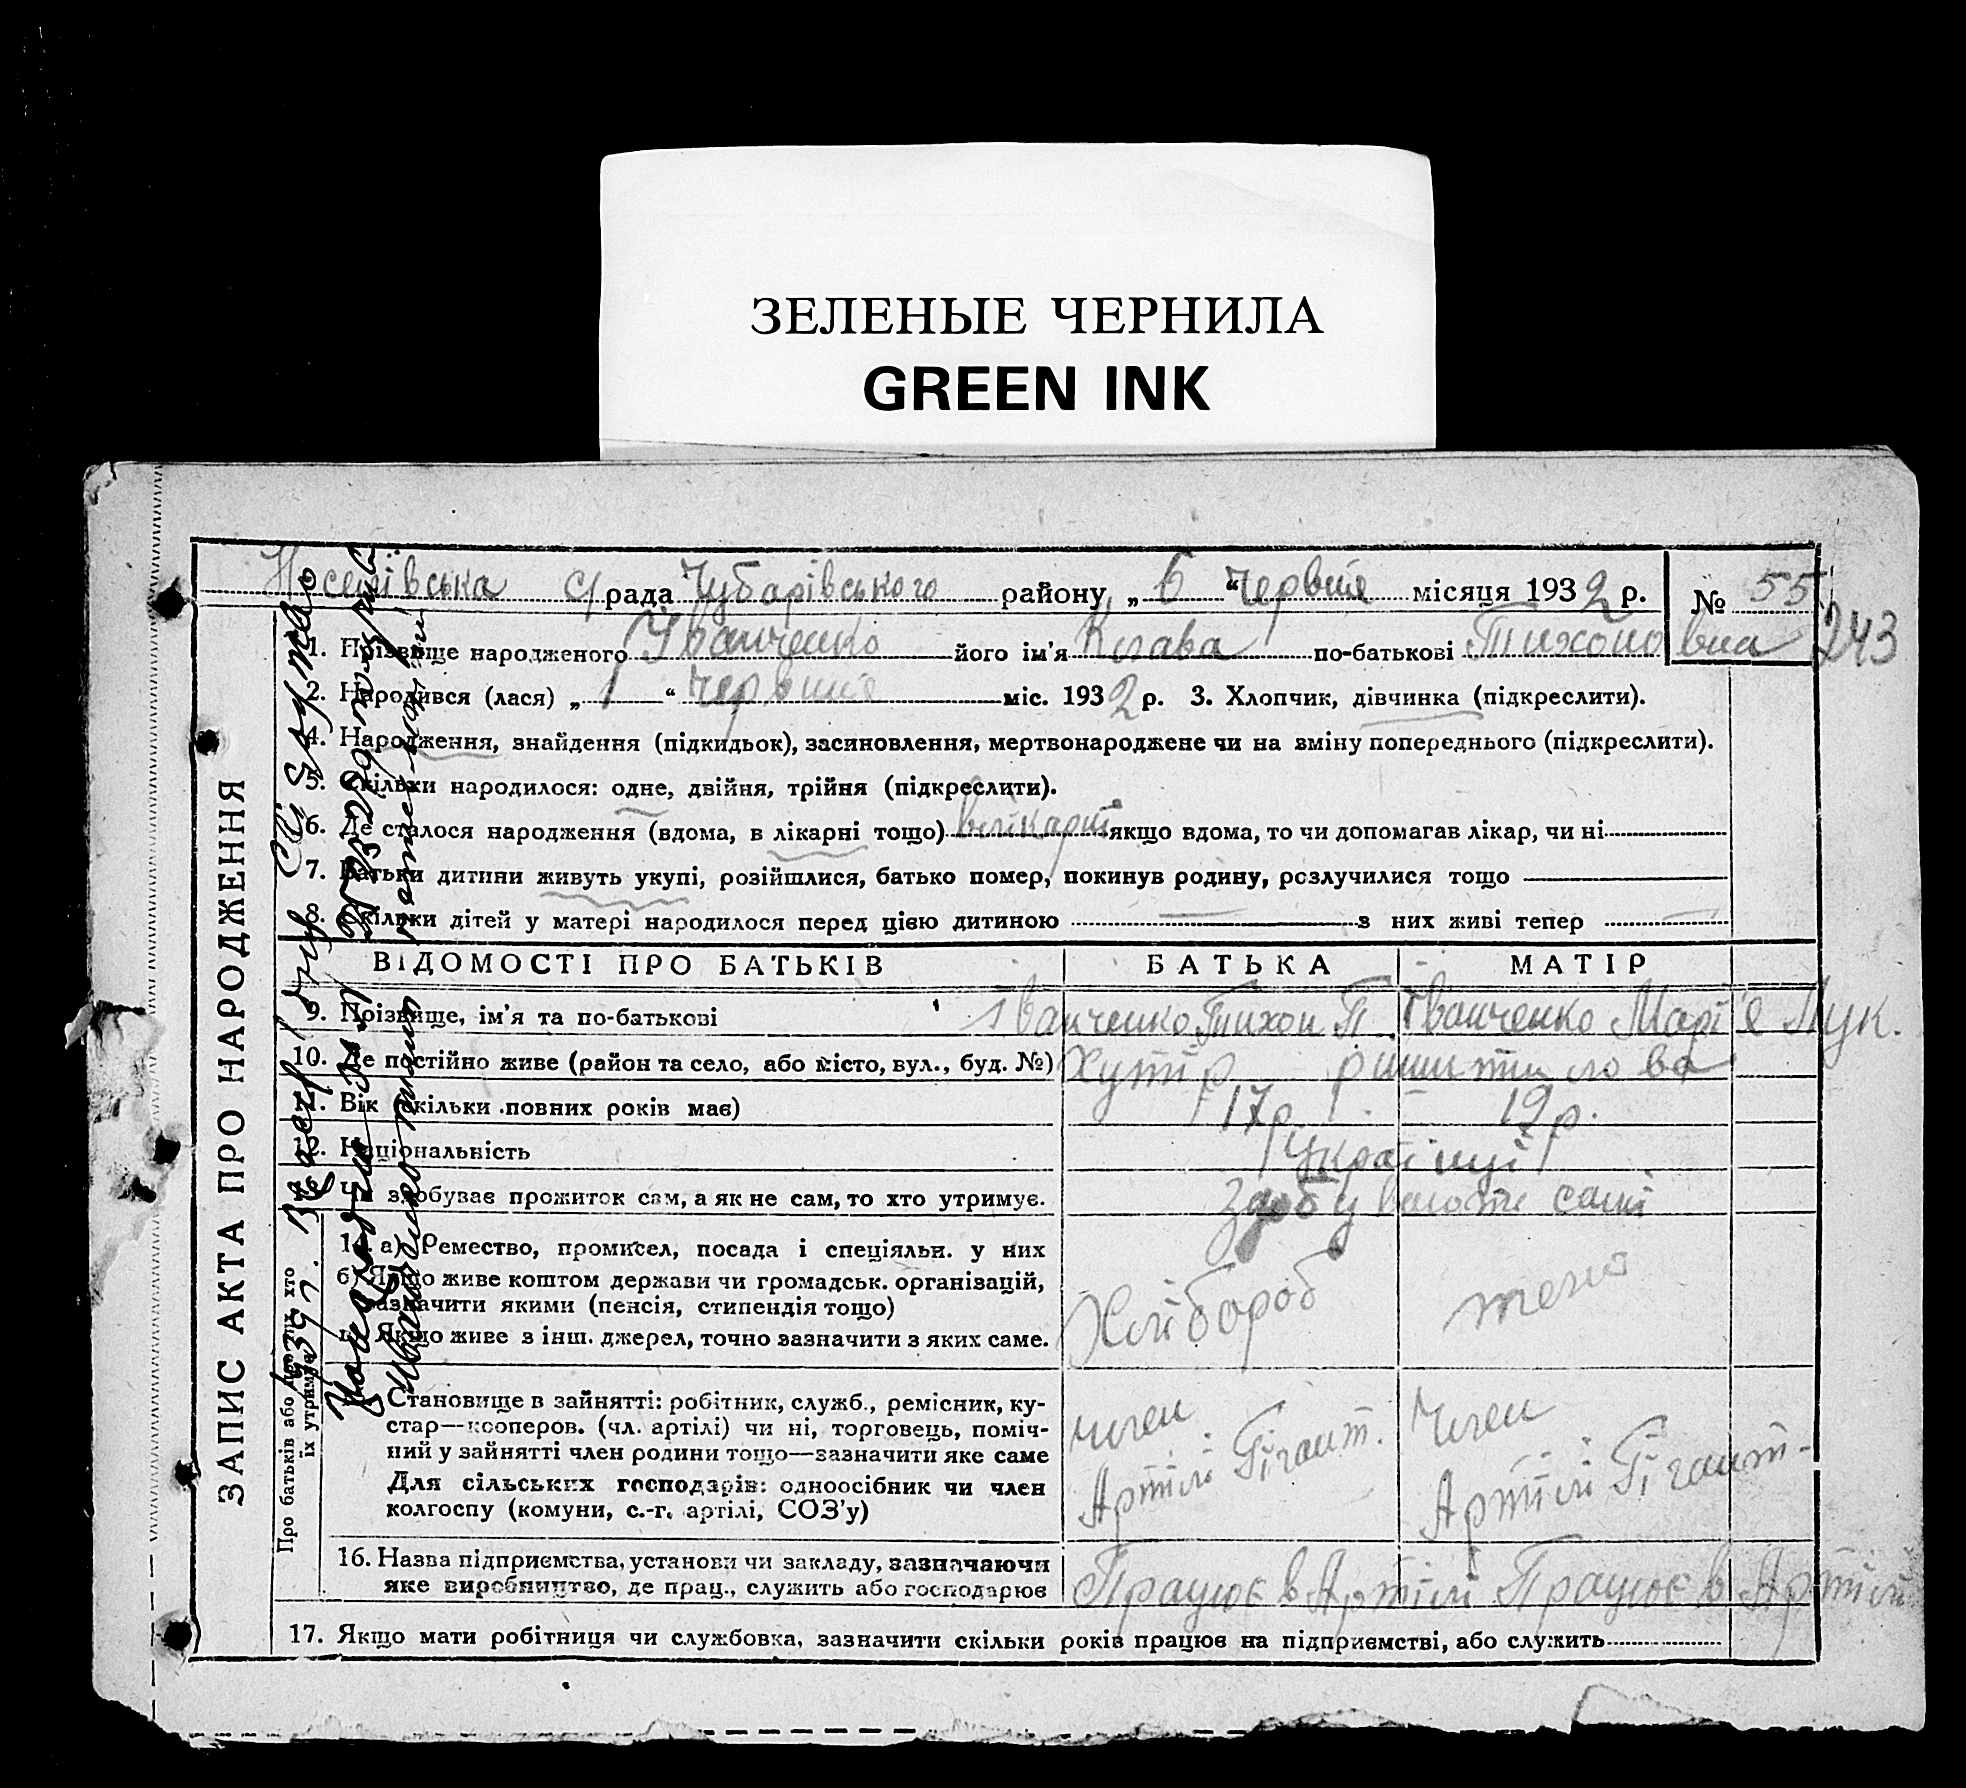 ЗЕЛЕНЫЕ ЧЕРНИЛА
GREEN INK
с/рада Чубарівського району „ 6 “ Червня місяця 1932 р. № 55
243
1. Прізвище народженого Іванченко його ім'я Клава по-батькові Тихоновна
2. Народився (лася) „ 1 “ Червня міс. 1932 р. 3. Хлопчик, дівчинка (підкреслити).
4. Народження, знайдення (підкидьок), засиновлення, мертвонароджене чи на зміну попереднього (підкреслити).
5. Скільки народилося: одне, двійня, трійня (підкреслити).
6. Де сталося народження (вдома, в лікарні тощо) влікарні якщо вдома, то чи допомагав лікар, чи ні
7. Батьки дитини живуть укупі, розійшлися, батько помер, покинув родину, розлучилися тощо
8. Скільки дітей у матері народилося перед цією дитиною — з них живі тепер —
ВІДОМОСТІ ПРО БАТЬКІВ БАТЬКА МАТІР
9. Прізвище, ім'я та по-батькові Іванченко Тихон П. Іванченко Марія Лук.
10. Де постійно живе (район та село, або місто, вул., буд. №) Хутір
11. Вік (скільки повних років має) 17р. 19р.
12. Національність Українці
13. Чи здобуває прожиток сам, а як не сам, то хто утримує. Здобувають самі
14. а) Ремество, промисел, посада і спеціяльн. у них
б) Якщо живе коштом держави чи громадськ. організацій,
зазначити якими (пенсія, стипендія тощо)
в) Якщо живе з інш. джерел, точно зазначити з яких саме.
Хлібороб теж
15. Становище в зайнятті: робітник, служб., ремісник, ку-
стар—кооперов. (чл. артілі) чи ні, торговець, поміч-
ний у зайнятті член родини тощо—зазначити яке саме
Для сільських господарів: одноосібник чи член
колгоспу (комуни, с.-г. артілі, СОЗ'у)
член Артілі Гігант. Член Артілі Гігант.
16. Назва підприємства, установи чи закладу, зазначаючи
яке виробництво, де прац., служить або господарює
Працює в Артілі Працює в Артілі
17. Якщо мати робітниця чи службовка, зазначити скільки років працює на підприємстві, або служить
ЗАПИС АКТА ПРО НАРОДЖЕННЯ
Про батьків або про тих, хто
їх утримує